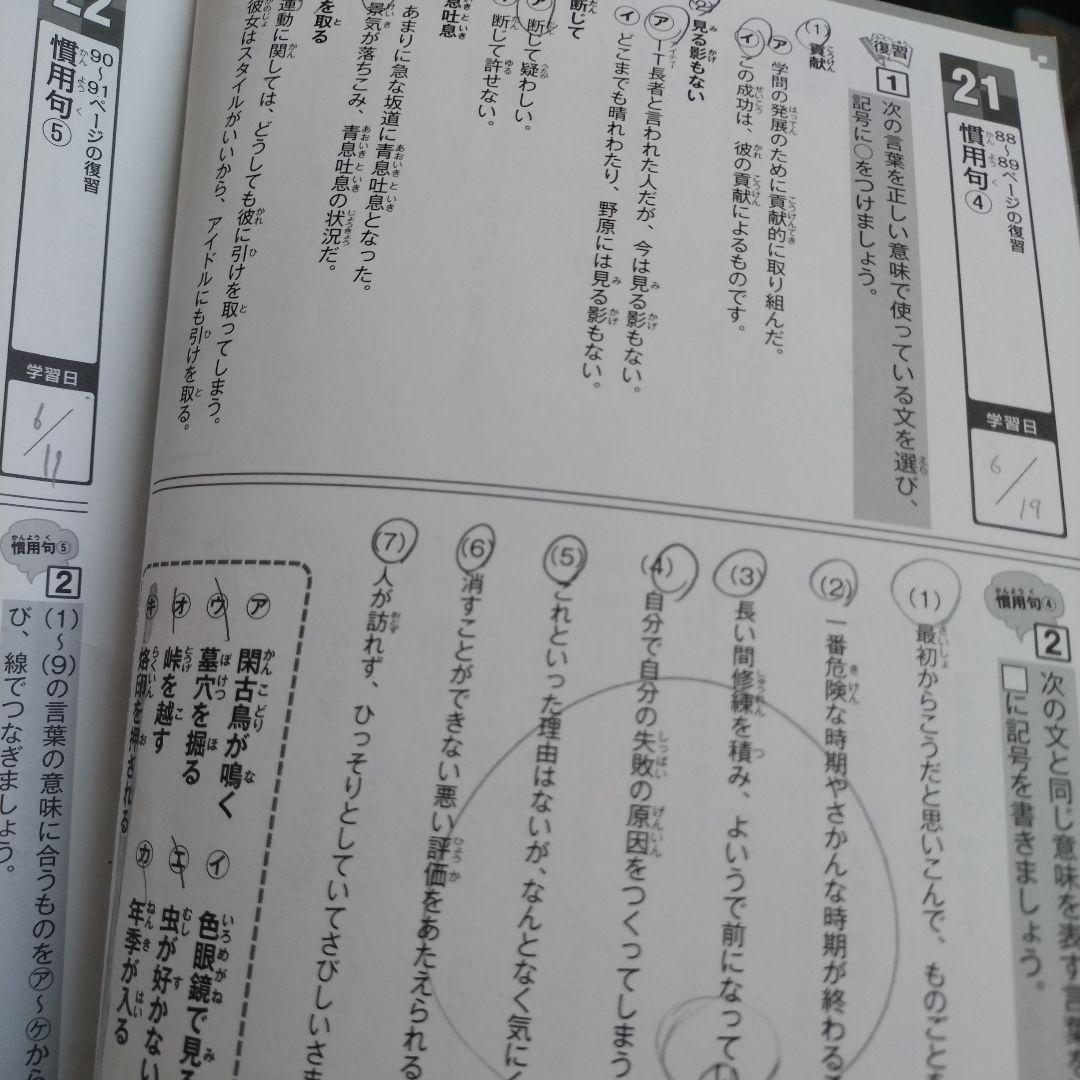 21
88〜89ページの復習
慣用句④
学習日
6/19
復習
1
次の言葉を正しい意味で使っている文を選び、
記号に○をつけましょう。
(1) 貢献
ア 学問の発展のために貢献的に取り組んだ。
イ この成功は、彼の貢献によるものです。
(2) 見る影もない
ア IT長者と言われた人だが、今は見る影もない。
イ どこまでも晴れわたり、野原には見る影もない。
断じて
ア 断じて疑わしい。
断じて許せない。
青息吐息
あまりに急な坂道に青息吐息となった。
景気が落ちこみ、青息吐息の状況だ。
を取る
運動に関しては、どうしても彼に引けを取ってしまう。
彼女はスタイルがいいから、アイドルにも引けを取る。
慣用句④
2
次の文と同じ意味を表す言葉を
□に記号を書きましょう。
(1) 最初からこうだと思いこんで、ものごとを
(2) 一番危険な時期やさかんな時期が終わる
(3) 長い間修練を積み、よいうで前になってい
(4) 自分で自分の失敗の原因をつくってしまう
(5) これといった理由はないが、なんとなく気に
(6) 消すことができない悪い評価をあたえられる
(7) 人が訪れず、ひっそりとしていてさびしいさま
ア 閑古鳥が鳴く
イ 色眼鏡で見る
ウ 墓穴を掘る
エ 虫が好かない
オ 峠を越す
カ 年季が入る
キ 烙印を押される
22
90〜91ページの復習
慣用句⑤
学習日
6/19
慣用句⑤
2
(1)〜(9)の言葉の意味に合うものを㋐〜㋘から
び、線でつなぎましょう。